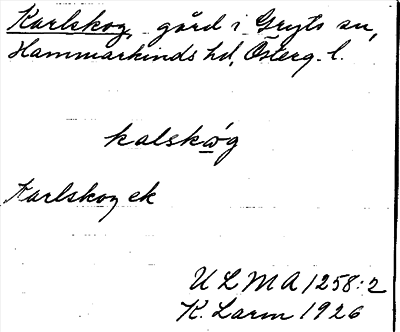 Karlskog, gård i Gryts sn,
Hammarkinds hd, Österg. l.
kalskώg
Karlskog ek
ULMA 1258:2
K. Larm 1926